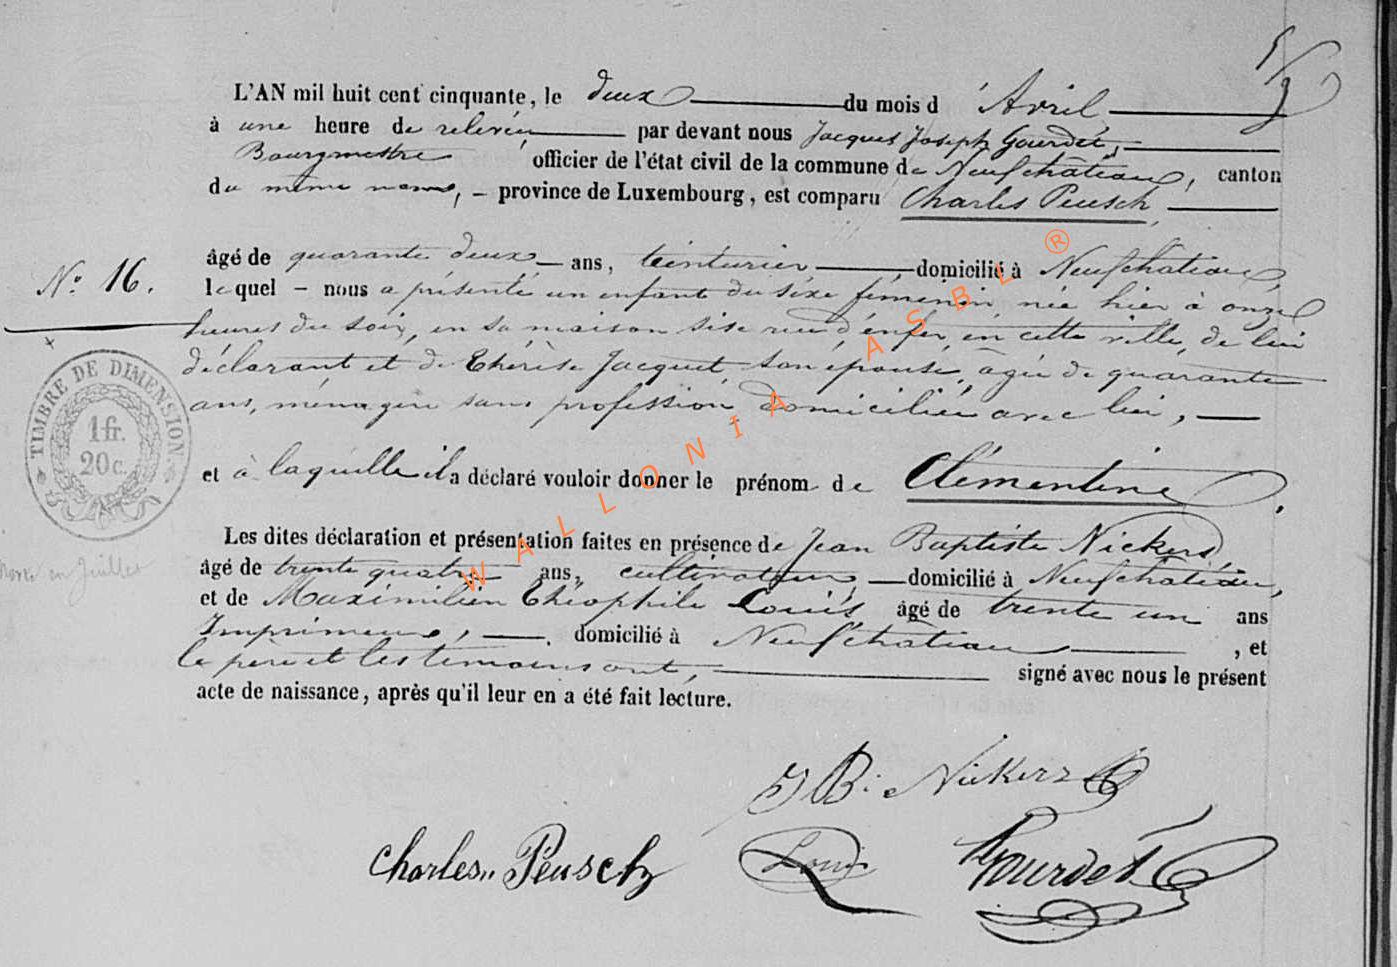 L'AN mil huit cent cinquante, le deux du mois d'Avril
à une heure de relevée par devant nous Jacques Joseph Gourdet,
Bourgmestre officier de l'état civil de la commune de Neufchâteau, canton
du même nom, - province de Luxembourg, est comparu Charles Peusch,
âgé de quarante deux ans, teinturier domicilié à Neufchateau,
No. 16.
lequel - nous a présenté un enfant du séxe féménin, née hier à onze
heures du soir, en sa maison sise rue d'enfer, en cette ville, de lui
déclarant et de Thérèse Jacquet, son épouse, agée de quarante
ans, ménagère sans profession, domiciliée avec lui,
TIMBRE DE DIMENSION
1 fr.
20 c.
et à laquelle il a déclaré vouloir donner le prénom de Clémentine.
Les dites déclaration et présentation faites en présence de Jean Baptiste Nickers
âgé de trente quatre ans, cultivateur, domicilié à Neufchateau,
morte en Juillet
et de Maximilien Théophile Louis âgé de trente un ans
Imprimeur, domicilié à Neufchateau, et
le père et les témoins ont, signé avec nous le présent
acte de naissance, après qu'il leur en a été fait lecture.
JB. Nickers
Charles Peusch Louis Gourdet
WALLONIA ASBL ®